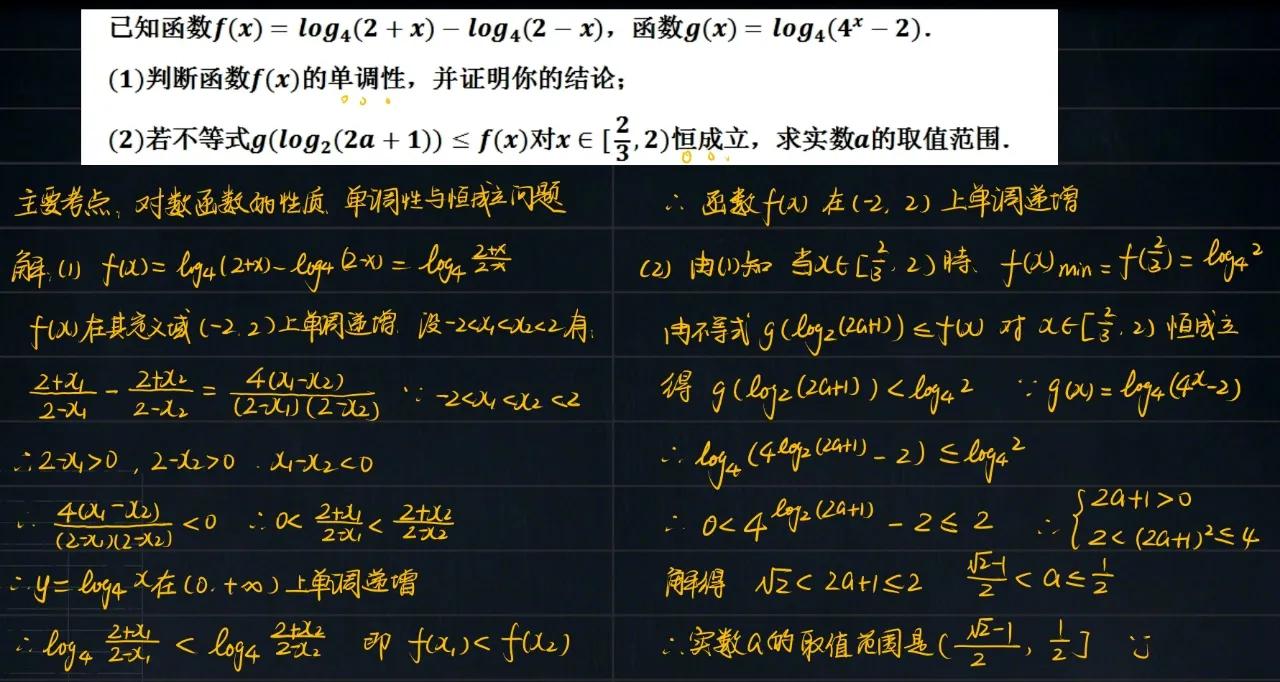 已知函数f(x) = log₄(2 + x) − log₄(2 − x)，函数g(x) = log₄(4ˣ − 2).
(1)判断函数f(x)的单调性，并证明你的结论；
(2)若不等式g(log₂(2a + 1)) ≤ f(x)对x ∈ [2/3, 2)恒成立，求实数a的取值范围.
主要考点: 对数函数的性质 单调性与恒成立问题
解:(1) f(x) = log₄(2+x) - log₄(2-x) = log₄ (2+x)/(2-x)
f(x)在其定义域(-2, 2)上单调递增 设-2<x₁<x₂<2有:
(2+x₁)/(2-x₁) - (2+x₂)/(2-x₂) = 4(x₁-x₂)/((2-x₁)(2-x₂)) ∵ -2<x₁<x₂<2
∴2-x₁>0 , 2-x₂>0 . x₁-x₂<0
∴ 4(x₁-x₂)/((2-x₁)(2-x₂)) < 0 ∴0< (2+x₁)/(2-x₁) < (2+x₂)/(2-x₂)
∴y=log₄x在(0. +∞)上单调递增
∴log₄ (2+x₁)/(2-x₁) < log₄ (2+x₂)/(2-x₂) 即 f(x₁)<f(x₂)
∴ 函数f(x)在(-2, 2)上单调递增
(2) 由(1)知 当x∈[2/3, 2)时、f(x)min = f(2/3) = log₄2
由不等式g(log₂(2a+1)) ≤ f(x) 对 x∈[2/3, 2)恒成立
得 g(log₂(2a+1)) < log₄2 ∵ g(x)=log₄(4ˣ-2)
∴ log₄(4^(log₂(2a+1)) - 2) ≤ log₄2
∴ 0< 4^(log₂(2a+1)) - 2 ≤ 2 ∴ { 2a+1>0
2<(2a+1)²≤4
解得 √2 < 2a+1≤2 (√2-1)/2 < a ≤ 1/2
∴实数a的取值范围是((√2-1)/2, 1/2]